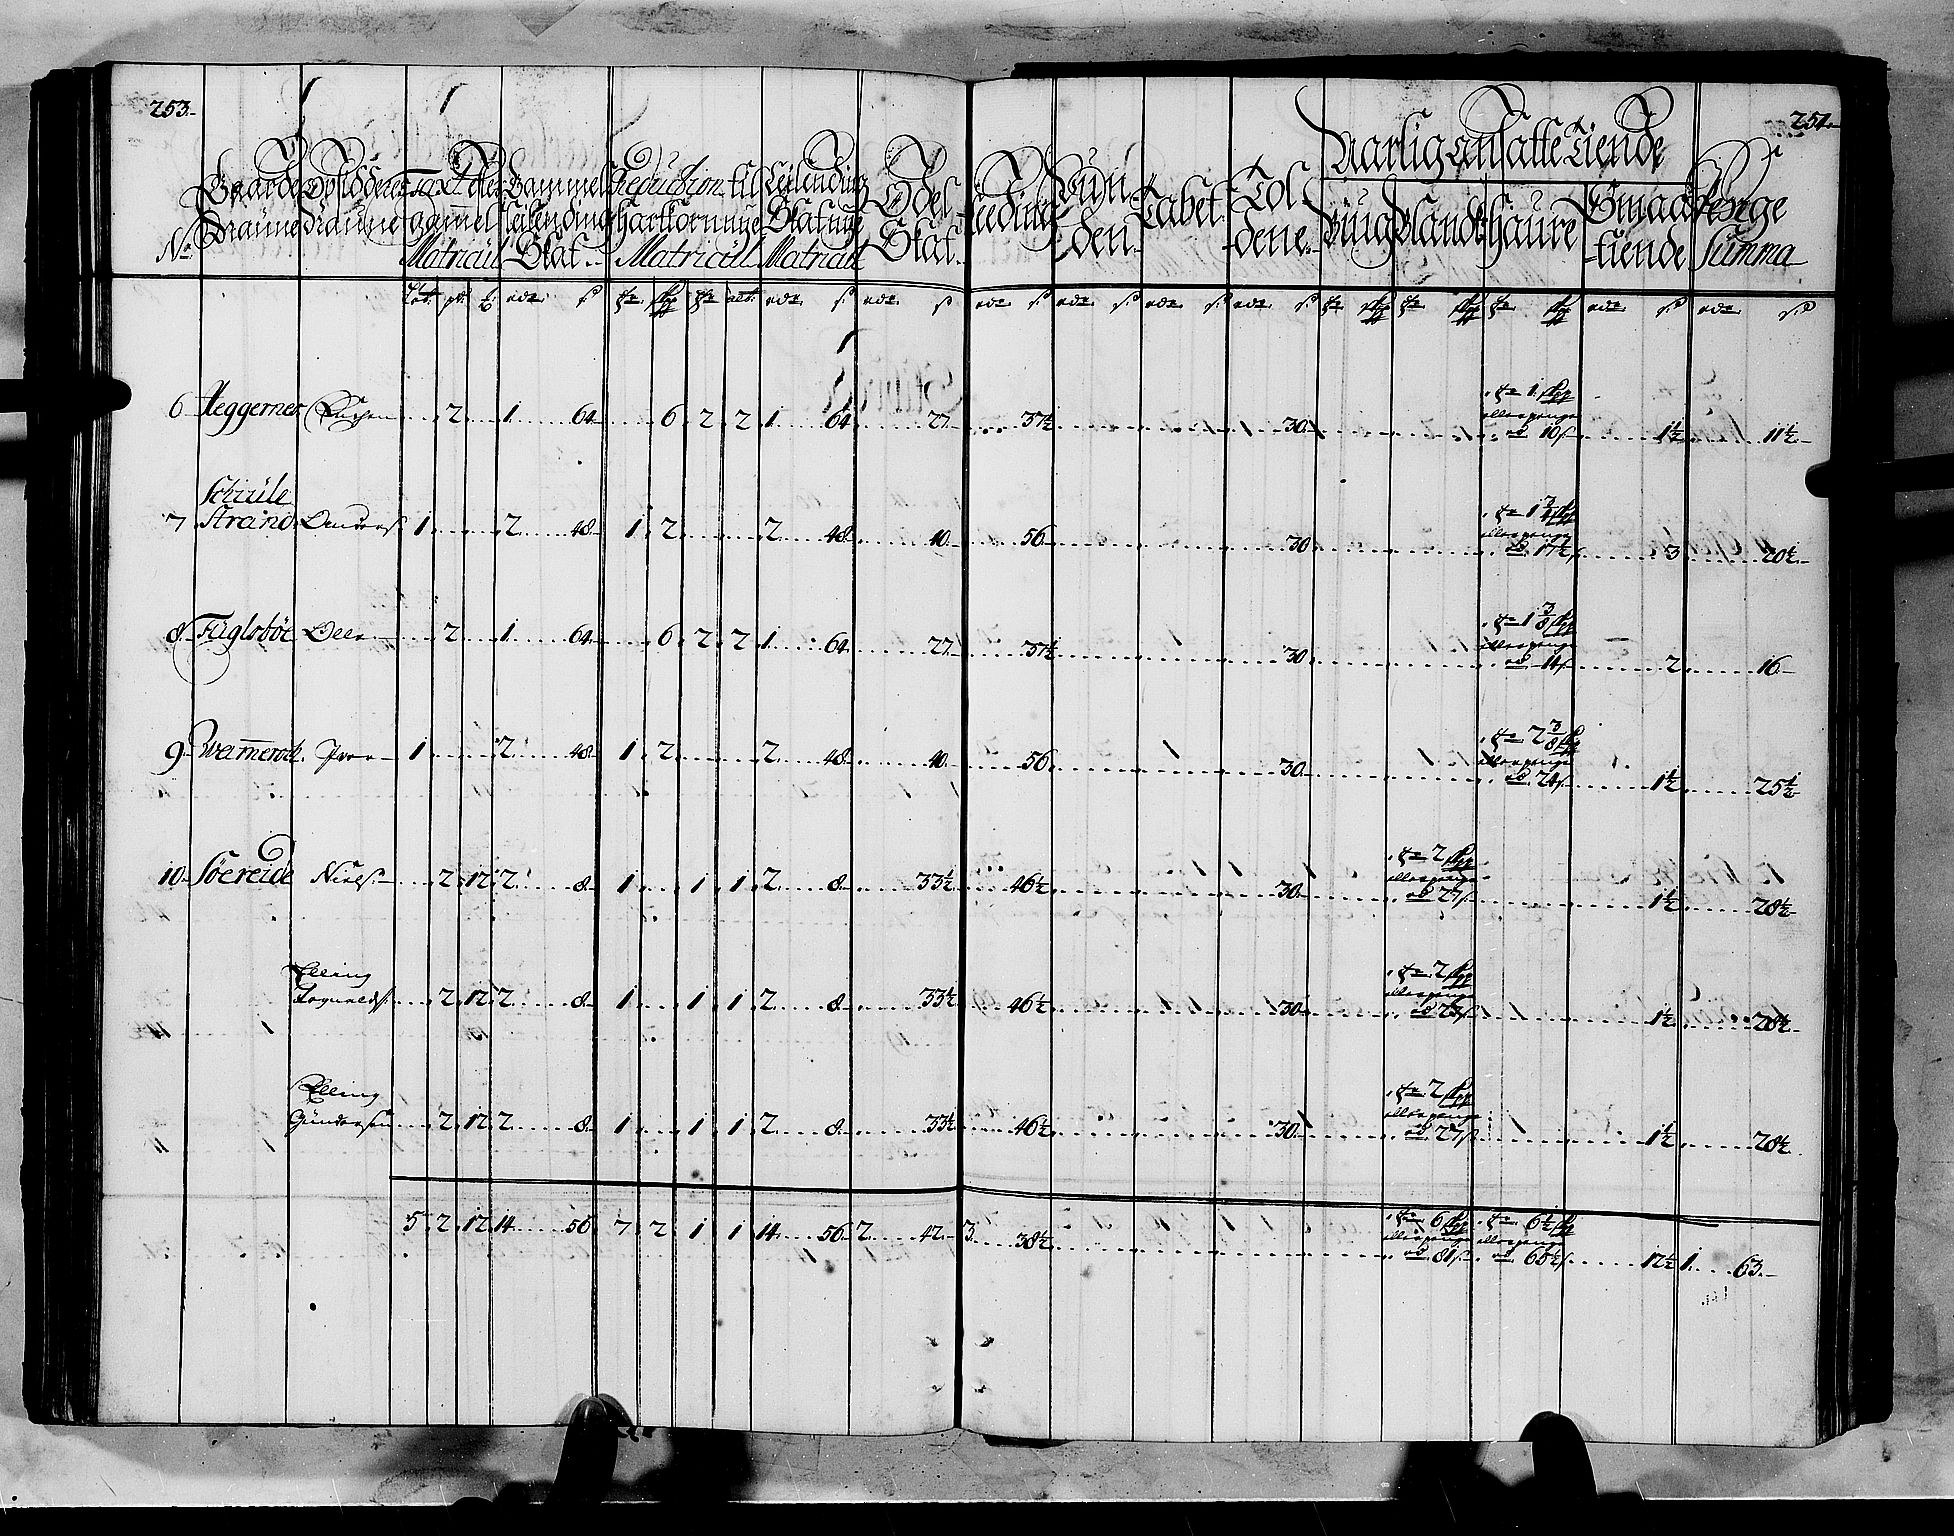 253.
254.
No Gaarde Naune
Opsiddere Naune
Taxt efter gammel Matricul
Gammel Leilending Skat
Reduction til hartkorn nye Matricul
Leilending Skat nye Matricul
Odel Skat
Leeding
Vun den
Tabet
Tol dene
Aarlig ansatte Tiende
Biug
Blandk
haure
Smaa tiende
Penge Summa
6 Heggernes 2 1 64 6 2 2 1 64 27 37½ 30 1 10 1½ 11½
7 Schiule Strand 1 2 48 1 2 2 48 40 56 30 17½ 3 20½
8 Fuglsböe 2 1 64 6 2 2 1 64 27 37½ 30 1⅜ 14 2 16
9 Iver 1 2 48 1 2 2 48 40 56 30 2⅜ 24 1½ 25½
10 Söereide Niels 2 12 2 8 1 1 1 2 8 33½ 46½ 30 2 27 1½ 28½
Elling 2 12 2 8 1 1 1 2 8 33½ 46½ 30 2 27 1½ 28½
Elling Gundersen 2 12 2 8 1 1 1 2 8 33½ 46½ 30 2 27 1½ 28½
5 2 12 14 56 7 2 1 1 14 56 2 42 3 38½ 6 81 6½ 65½ 12½ 1 63